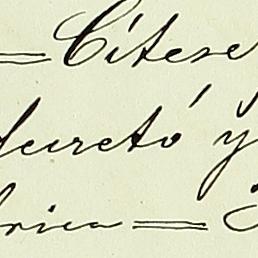 = Cítese
decretó y
brica =